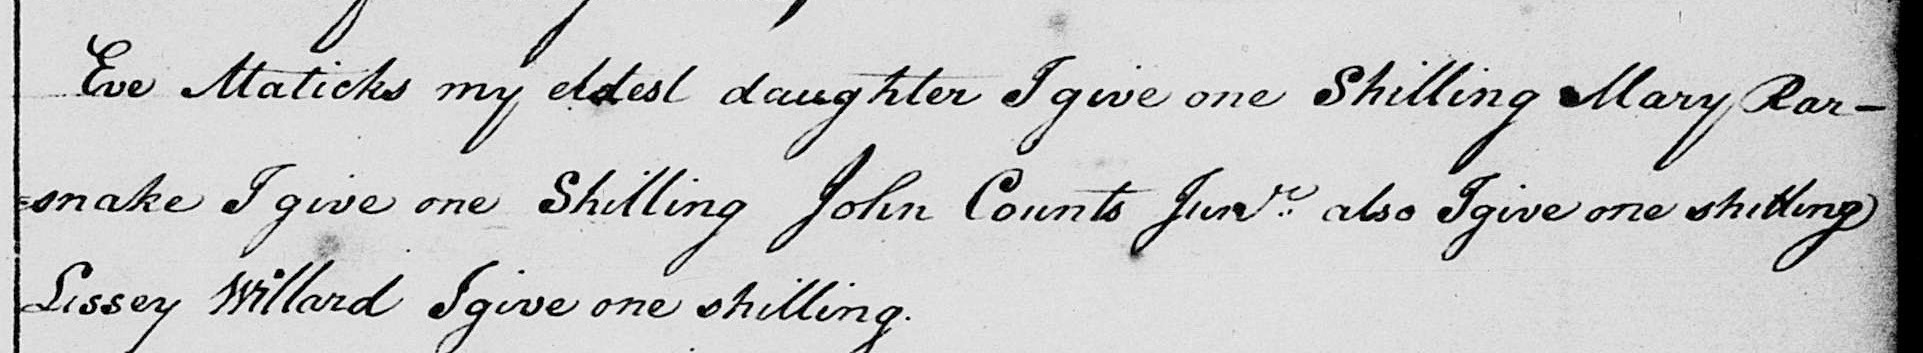 Eve Maticks my eldest daughter I give one Shilling Mary Rar-
=snake I give one Shilling John Counts Junr. also I give one shilling
Lissey Willard I give one shilling.